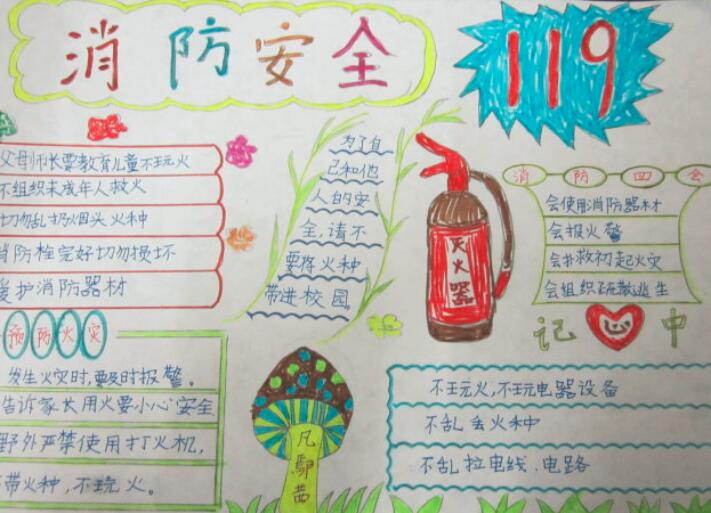 消防安全
119
父母师长要教育儿童不玩火
不组织未成年人救火
切勿乱扔烟头火种
消防栓完好切勿损坏
爱护消防器材
为了自
己和他
人的安
全,请不
要将火种
带进校园
灭火器
消防四会
会使用消防器材
会报火警
会扑救初起火灾
会组织疏散逃生
记心中
预防火灾
发生火灾时,要及时报警。
告诉家长用火要小心安全
野外严禁使用打火机,
不带火种,不玩火。
凡
茜
不玩火,不玩电器设备
不乱丢火种
不乱拉电线、电路